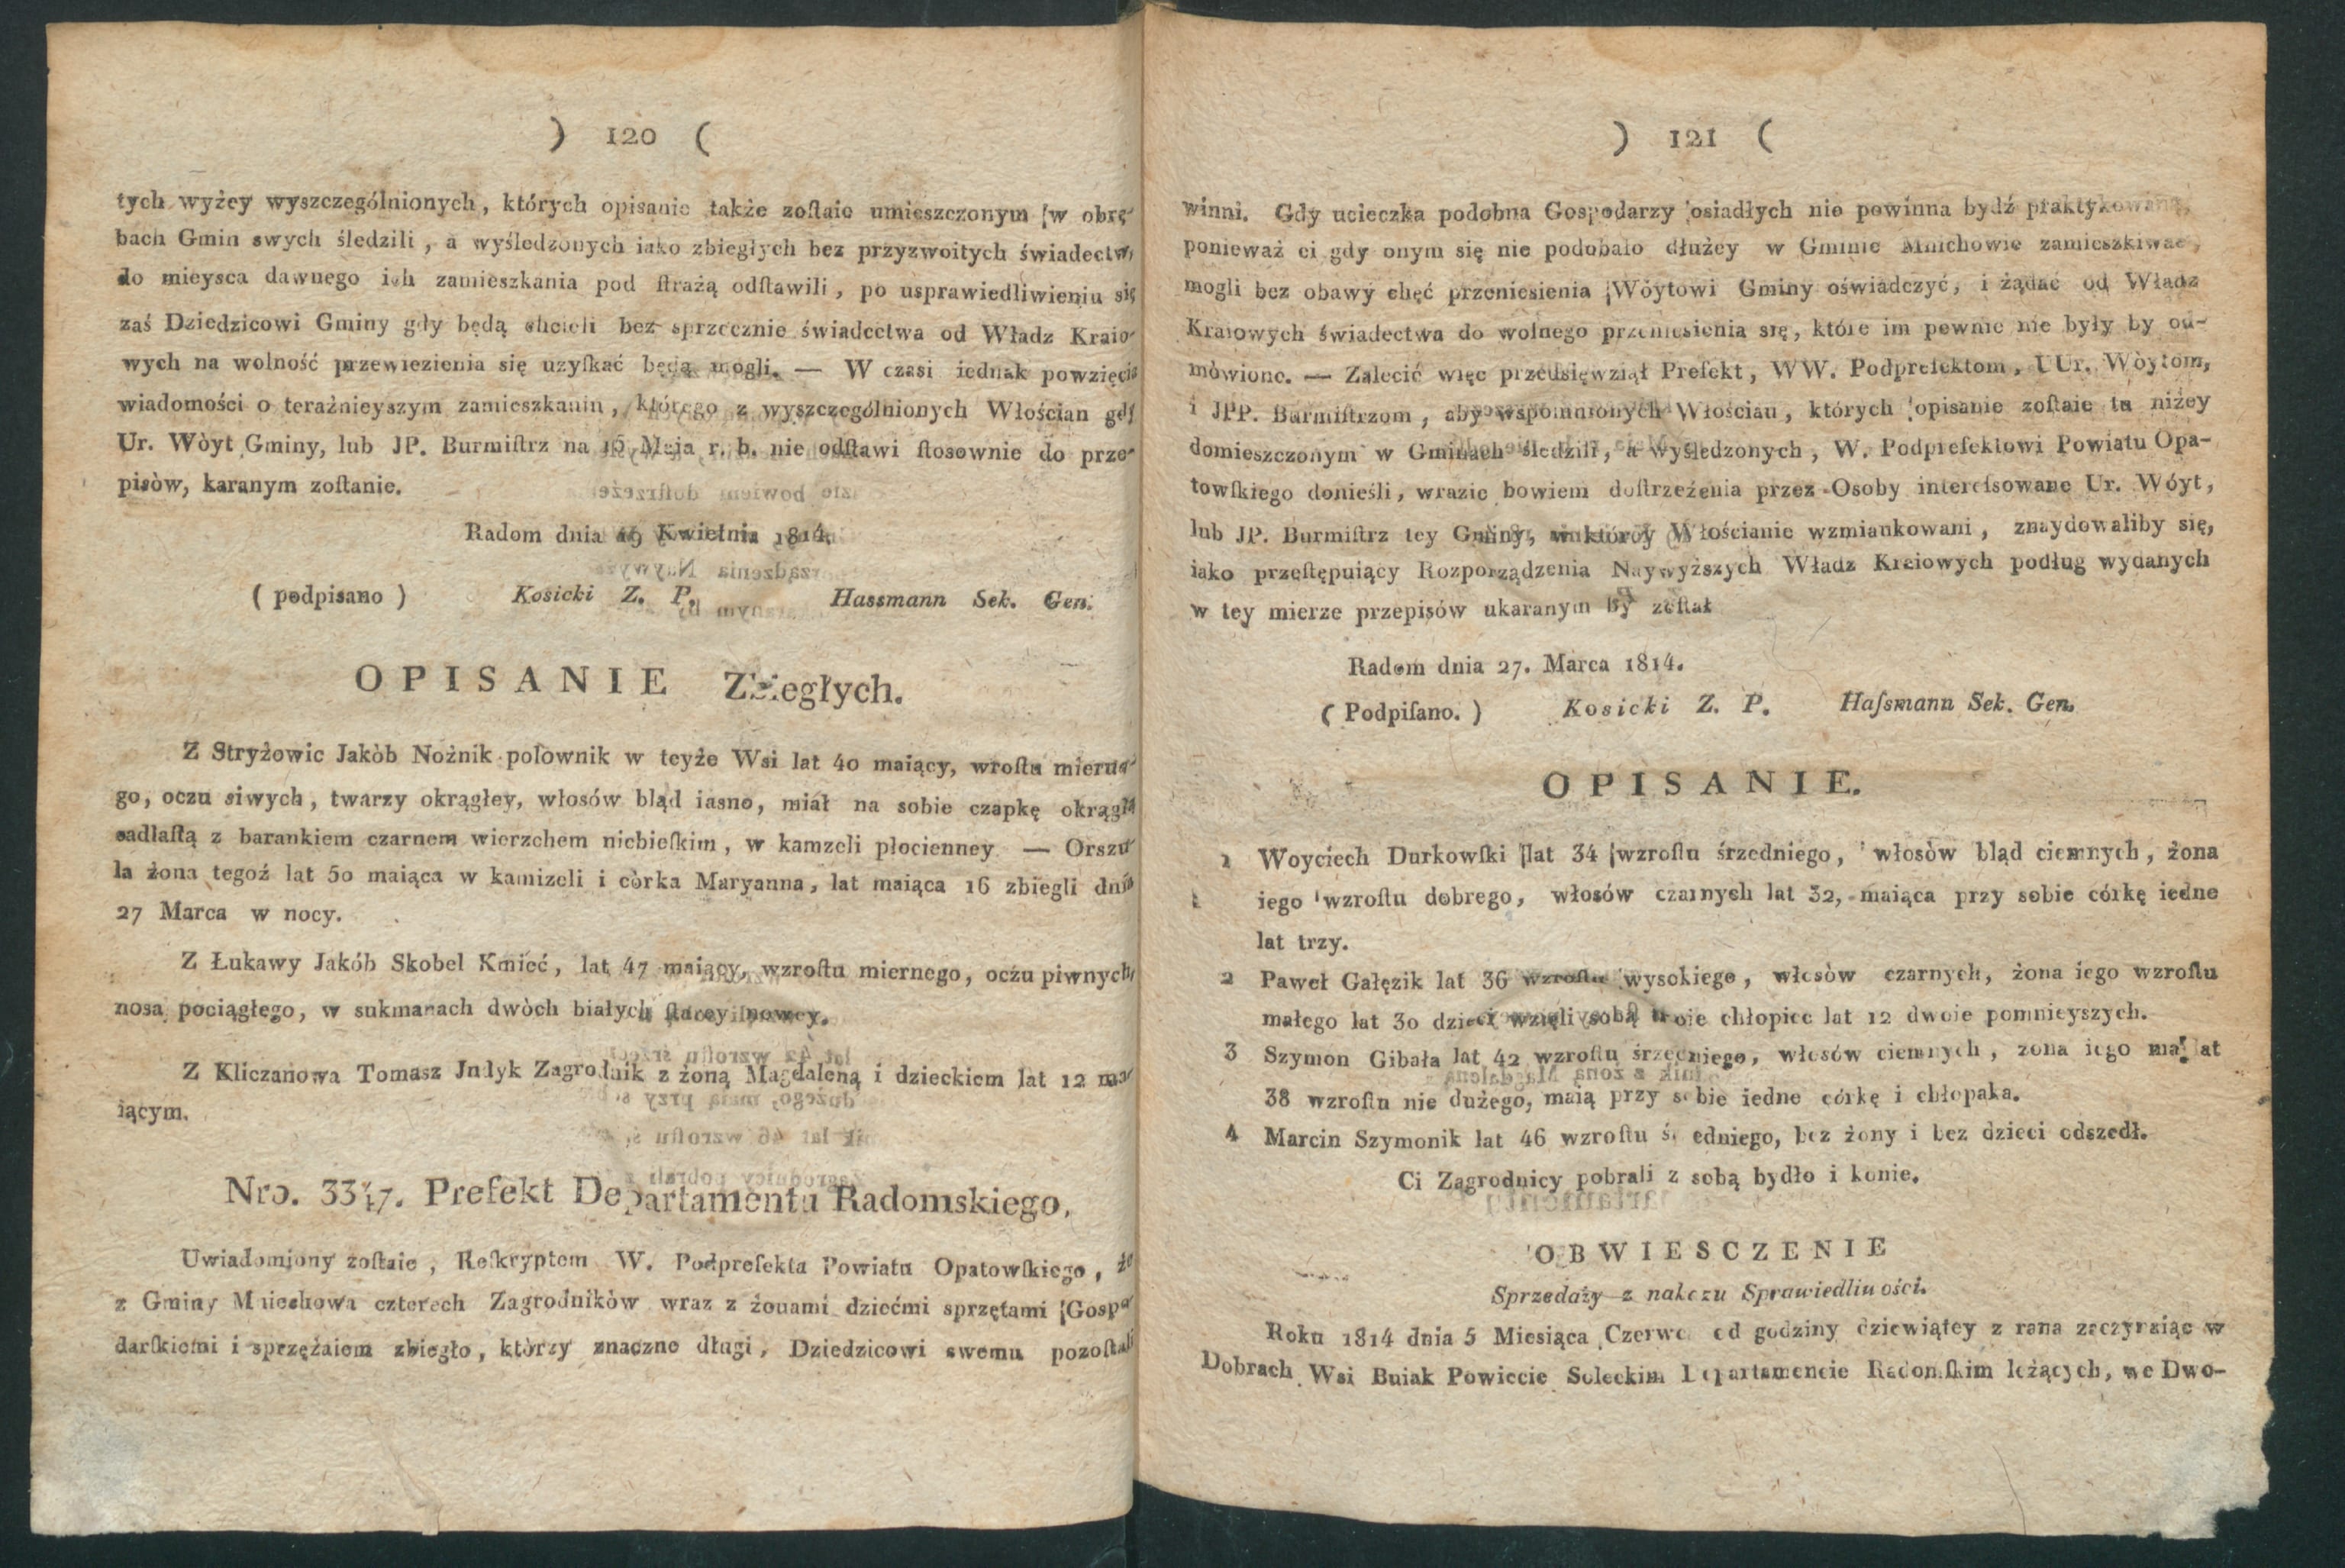 ) 120 (
tych wyżey wyszczególnionych, których opisanie także zoſtaie umieszczonym w obrę-
bach Gmin swych śledzili, a wyśledzonych iako zbiegłych bez przyzwoitych świadectw,
do mieysca dawnego ich zamieszkania pod ſtrażą odſtawili, po usprawiedliwieniu się
zaś Dziedzicowi Gminy gdy będą chcieli bez sprzecznie świadectwa od Władz Kraio-
wych na wolność przewiezienia się uzyſkać będą mogli. — W czasi iednak powzięcia
wiadomości o teraźnieyszym zamieszkaniu, którego z wyszczególnionych Włościan gdy
Ur. Wòyt Gminy, lub JP. Burmiſtrz na 16 Maja r. b. nie odſtawi ſtosownie do prze-
pisòw, karanym zoſtanie.
Radom dnia 19 Kwietnia 1814.
( podpisano ) Kosicki Z. P. Hassmann Sek. Gen.
OPISANIE Zbiegłych.
Z Stryżowic Jakòb Nożnik połownik w teyże Wsi lat 40 maiący, wroſtu mierne-
go, oczu siwych, twarzy okrągłey, włosów bląd iasno, miał na sobie czapkę okrągłą
sadłaſtą z barankiem czarnem wierzchem niebieſkim, w kamzeli płocienney — Orszu-
la żona tegoż lat 50 maiąca w kamizeli i còrka Maryanna, lat maiąca 16 zbiegli dnia
27 Marca w nocy.
Z Łukawy Jakób Skobel Kmieć, lat 47 maiący, wzroſtu miernego, oczu piwnych,
nosa pociągłego, w sukmanach dwòch białych ſtarey i nowey.
Z Kliczanowa Tomasz Jndyk Zagrodnik z żoną Magdaleną i dzieckiem lat 12 ma-
iącym.
Nro. 3347. Prefekt Departamentu Radomskiego,
Uwiadomiony zoſtaie, Reſkryptem W. Podprefekta Powiatu Opatowſkiego, że
z Gminy Mniechowa czterech Zagrodnikòw wraz z żonami dziećmi sprzętami Gospo-
darſkiemi i sprzężaiem zbiegło, którzy znaczne długi, Dziedzicowi swemu pozoſtali
) 121 (
winni. Gdy ucieczka podobna Gospodarzy osiadłych nie powinna bydź praktykowaną,
ponieważ ci gdy onym się nie podobało dłużey w Gminie Mnichowie zamieszkiwać,
mogli bez obawy chęć przeniesienia Wòytowi Gminy oświadczyć, i żądać od Władz
Kraiowych świadectwa do wolnego przeniesienia się, które im pewnie nie były by od-
mòwione. — Zalecić więc przedsięwziął Prefekt, WW. Podprefektom, UUr. Wòytom,
i JPP. Burmiſtrzom, aby wspomnionych Włościan, których opisanie zoſtaie tu niżey
domieszczonym w Gminach śledzili, a wyśledzonych, W. Podprefektowi Powiatu Opa-
towſkiego donieśli, wrazie bowiem doſtrzeżenia przez Osoby interesowane Ur. Wóyt,
lub JP. Burmiſtrz tey Gminy, w którey Włościanie wzmiankowani, znaydowaliby się,
iako przeſtępuiący Rozporządzenia Naywyższych Władz Kraiowych podług wydanych
w tey mierze przepisów ukaranym by zoſtał
Radom dnia 27. Marca 1814.
( Podpiſano. ) Kosicki Z. P. Haſsmann Sek. Gen.
OPISANIE.
1 Woyciech Durkowſki lat 34 wzroſtu śrzedniego, włosòw bląd ciemnych, żona
iego wzroſtu dobrego, włosów czarnych lat 32, maiąca przy sobie córkę iedne
lat trzy.
2 Paweł Gałęzik lat 36 wzroſtu wysokiego, włosòw czarnych, żona iego wzroſtu
małego lat 30 dzieci wzięli sobą troie chłopiec lat 12 dwoie pomnieyszych.
3 Szymon Gibała lat 42 wzroſtu śrzedniego, włosów ciemnych, zona iego ma lat
38 wzroſtu nie dużego, maią przy sobie iedne córkę i chłopaka.
4 Marcin Szymonik lat 46 wzroſtu średniego, bez żony i bez dzieci odszedł.
Ci Zagrodnicy pobrali z sobą bydło i konie.
OBWIESCZENIE
Sprzedaży z nakazu Sprawiedliwości.
Roku 1814 dnia 5 Miesiąca Czerwca od godziny dziewiątey z rana zaczynaiąc w
Dobrach Wsi Buiak Powiecie Soleckim Departamencie Radomſkim leżących, we Dwo-